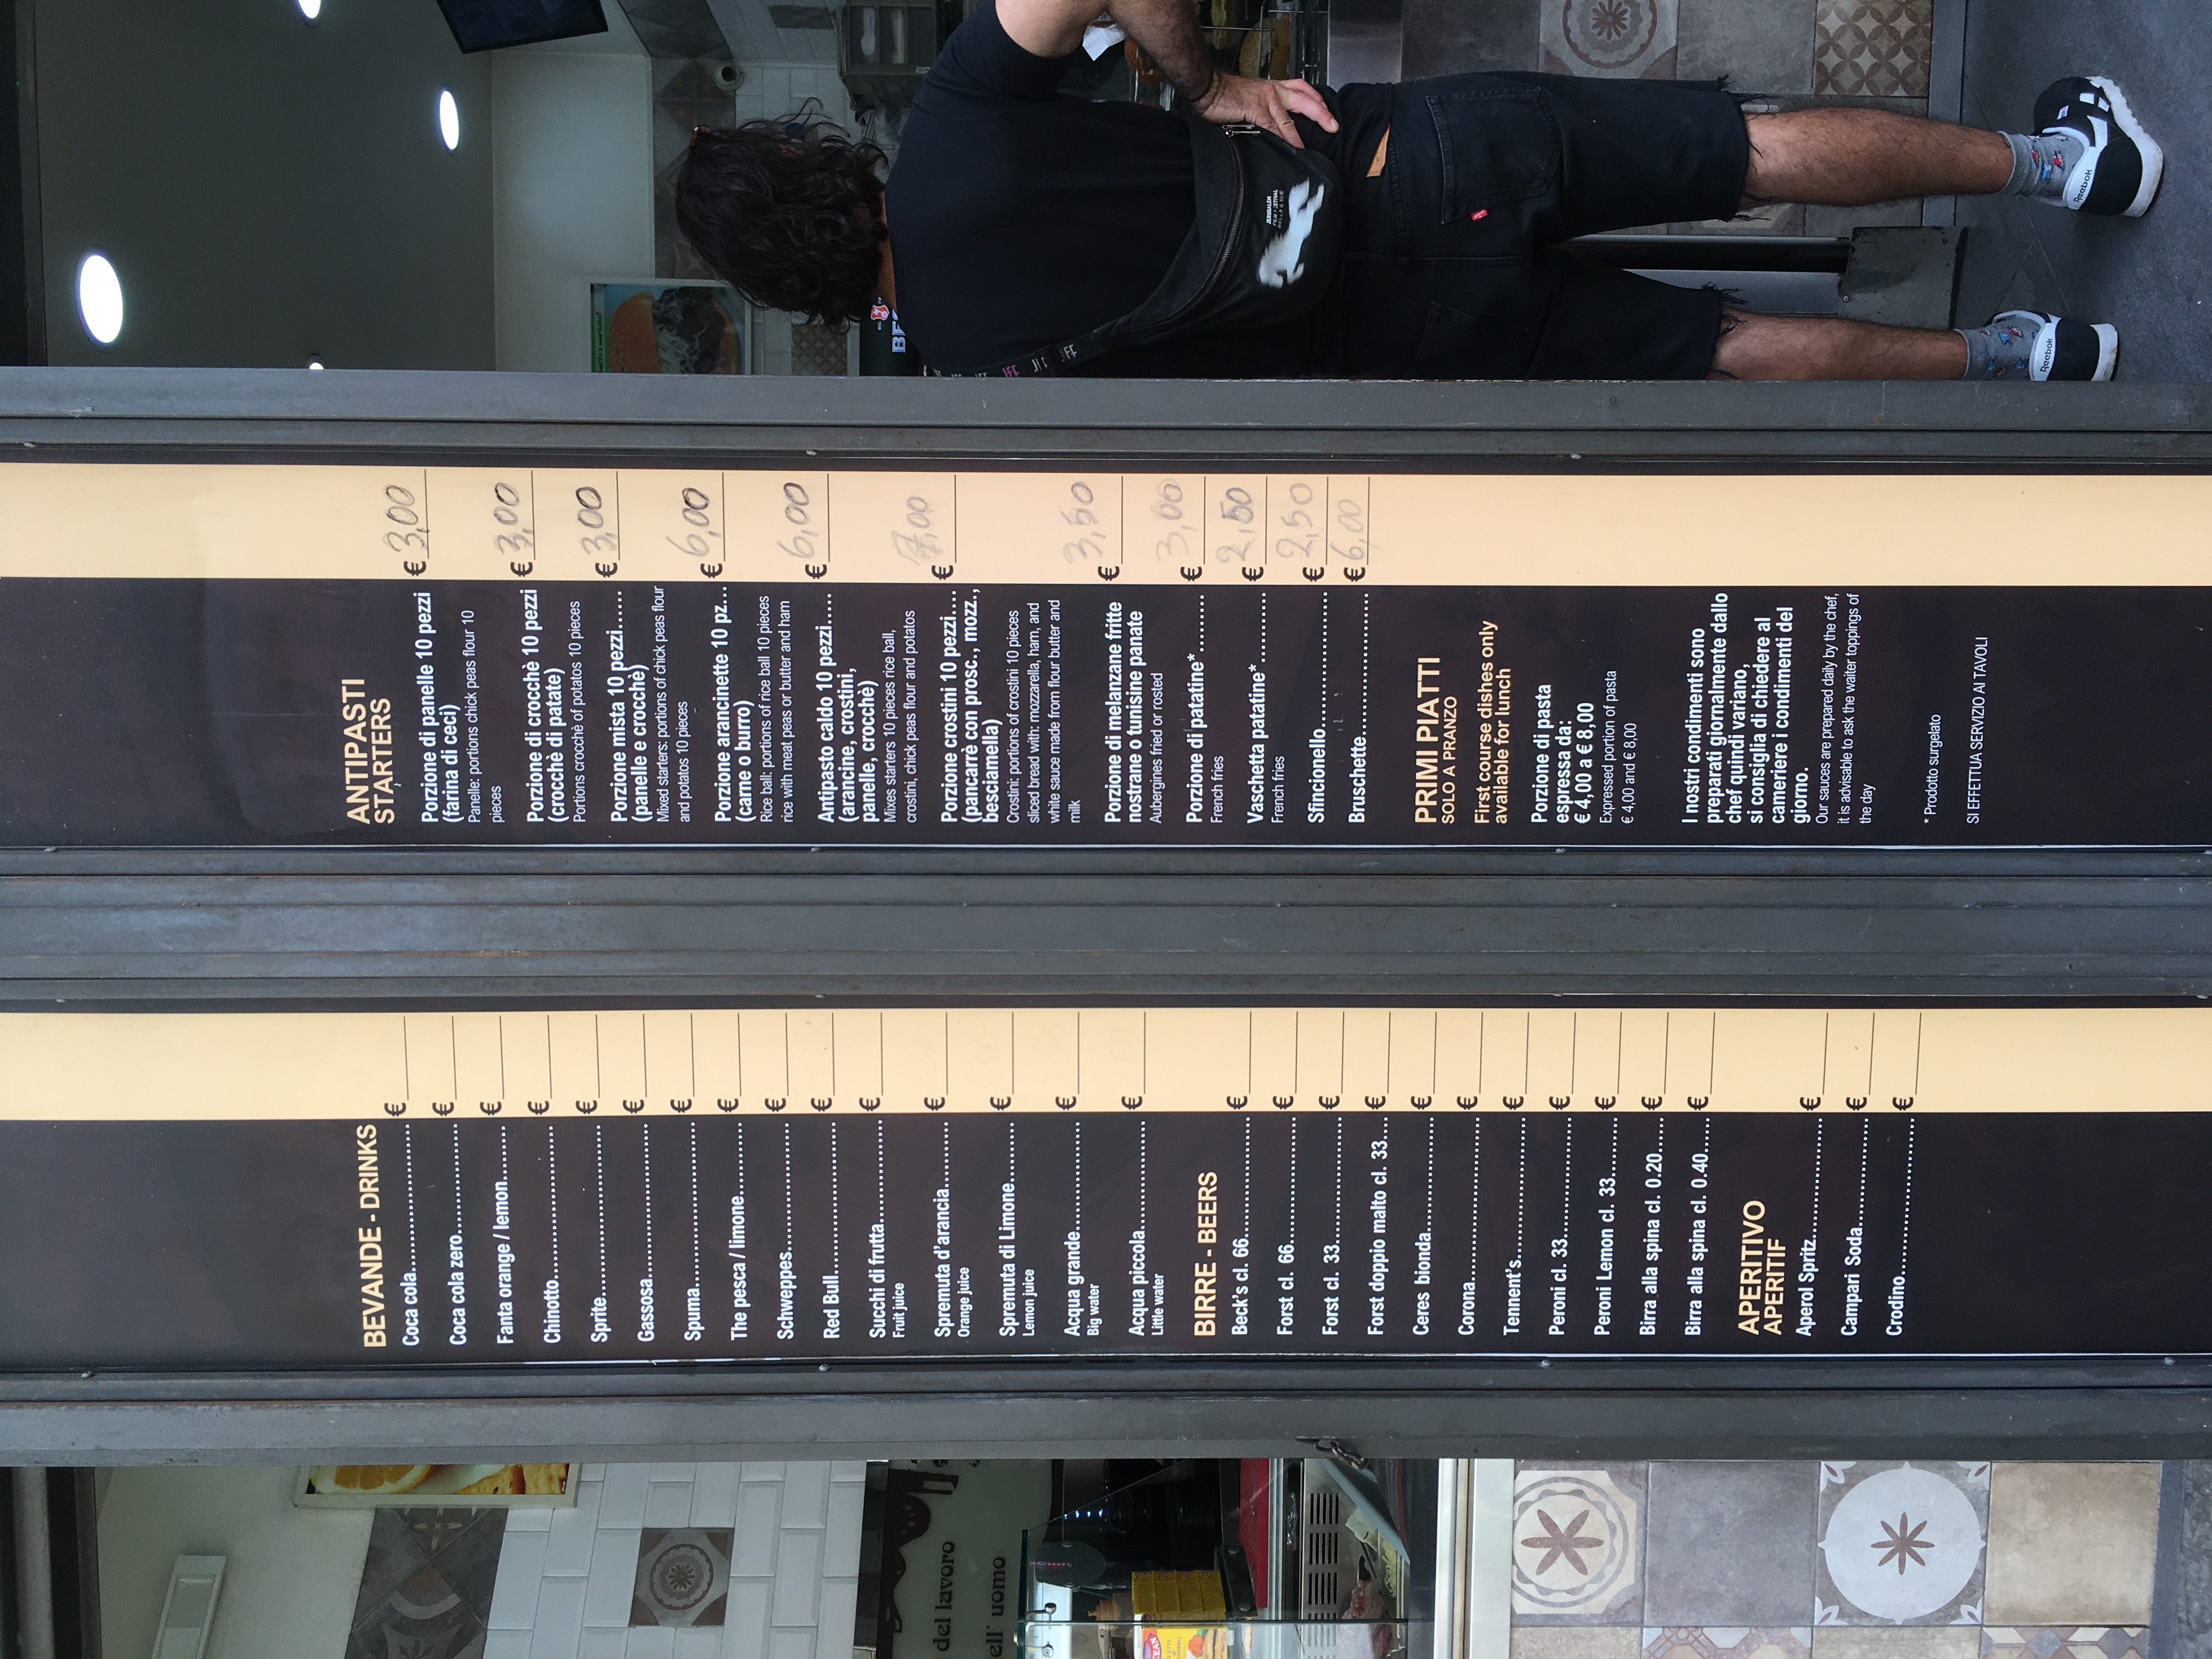 BEVANDE - DRINKS
Coca cola........................ €
Coca cola zero.................... €
Fanta orange / lemon......... €
Chinotto......................... €
Sprite............................ €
Gassosa......................... €
Spuma........................... €
The pesca / limone............ €
Schweppes..................... €
Red Bull......................... €
Succhi di frutta................. €
Fruit juice
Spremuta d'arancia........... €
Orange juice
Spremuta di Limone.......... €
Lemon juice
Acqua grande.................. €
Big water
Acqua piccola.................. €
Little water
BIRRE - BEERS
Beck's cl. 66.................... €
Forst cl. 66..................... €
Forst cl. 33..................... €
Forst doppio malto cl. 33.... €
Ceres bionda................... €
Corona........................... €
Tennent's....................... €
Peroni cl. 33.................... €
Peroni Lemon cl. 33.......... €
Birra alla spina cl. 0.20...... €
Birra alla spina cl. 0.40...... €
APERITIVO
APERITIF
Aperol Spritz.................... €
Campari Soda.................. €
Crodino.......................... €
ANTIPASTI
STARTERS
Porzione di panelle 10 pezzi € 3,00
(farina di ceci)
Panelle: portions chick peas flour 10
pieces
Porzione di crocchè 10 pezzi € 3,00
(crocchè di patate)
Portions crocchè of potatos 10 pieces
Porzione mista 10 pezzi...... € 3,00
(panelle e crocchè)
Mixed starters: portions of chick peas flour
and potatos 10 pieces
Porzione arancinette 10 pz... € 6,00
(carne o burro)
Rice ball: portions of rice ball 10 pieces
rice with meat peas or butter and ham
Antipasto caldo 10 pezzi..... € 6,00
(arancine, crostini,
panelle, crocchè)
Mixes starters 10 pieces rice ball,
crostini, chick peas flour and potatos
Porzione crostini 10 pezzi.... € 7,00
(pancarrè con prosc., mozz.,
besciamella)
Crostini: portions of crostini 10 pieces
sliced bread with: mozzarella, ham, and
white sauce made from flour butter and
milk
Porzione di melanzane fritte € 3,50
nostrane o tunisine panate
Aubergines fried or rosted
Porzione di patatine*......... € 3,00
French fries
Vaschetta patatine*........... € 2,50
French fries
Sfincionello...................... € 2,50
Bruschette....................... € 6,00
PRIMI PIATTI
SOLO A PRANZO
First course dishes only
available for lunch
Porzione di pasta
espressa da:
€ 4,00 a € 8,00
Expressed portion of pasta
€ 4,00 and € 8,00
I nostri condimenti sono
preparati giornalmente dallo
chef quindi variano,
si consiglia di chiedere al
cameriere i condimenti del
giorno.
Our sauces are prepared daily by the chef,
it is advisable to ask the waiter toppings of
the day
* Prodotto surgelato
SI EFFETTUA SERVIZIO AI TAVOLI
del lavoro
ell' uomo
JERUSALEM
Reebok
Reebok